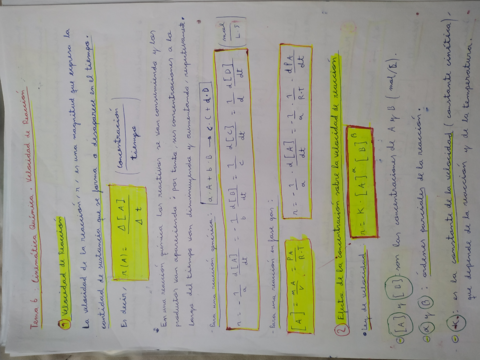 Tema 6: Cinemática Química: Velocidad de Reacción
① Velocidad de Reacción
La velocidad de la reacción, r, es una magnitud que expresa la
cantidad de sustancia que se forma o desaparece en el tiempo.
Es decir: r(A) = Δ[A] / Δt (concentración / tiempo)
• En una reacción química los reactivos se van consumiendo y los
productos van apareciendo; por tanto, sus concentraciones a lo
largo del tiempo van disminuyendo y aumentando respectivamente.
- Para una reacción genérica: a·A + b·B → c·C + d·D
r = - 1/a d[A]/dt = - 1/b d[B]/dt = 1/c d[C]/dt = 1/d d[D]/dt (mol / L·t)
- Para una reacción en fase gas:
[A] = nA/V = PA/R·T
r = - 1/a d[A]/dt = - 1/a · 1/R·T · dPA/dt
② Efecto de la concentración sobre la velocidad de reacción
• Ley de velocidad: r = K [A]^α · [B]^β
[A] y [B] son las concentraciones de A y B (mol/L).
α y β: órdenes parciales de la reacción.
es la constante de la velocidad (constante cinética),
que depende de la reacción y de la temperatura.